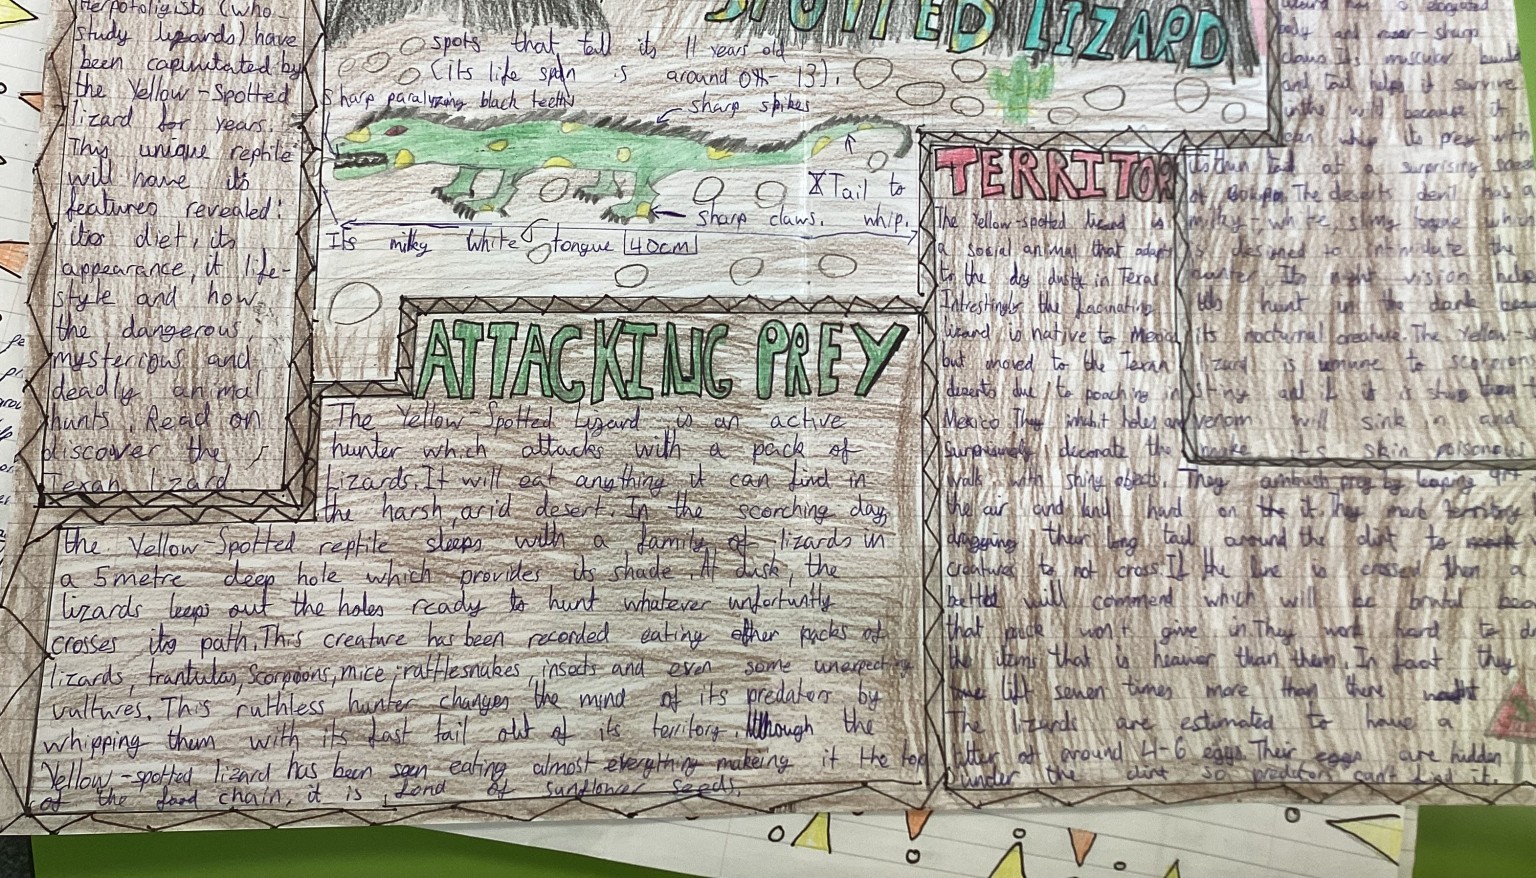 SPOTTED LIZARD
Herpotoligists (who
study lizards) have
been captivated by
the Yellow-Spotted
lizard for years.
This unique reptile
will have its
features revealed:
its diet, its
appearance, it life-
style and how
the dangerous
mysterious and
deadly animal
hunts. Read on
discover the
Texan lizard
spots that tell its 11 years old
(its life span is around 13).
Sharp paralyzing black teeth
sharp spikes
Tail to
whip.
sharp claws.
Its milky white tongue 40cm
ATTACKING PREY
The Yellow-Spotted Lizard is an active
hunter which attacks with a pack of
Lizards. It will eat anything it can find in
the harsh, arid desert. In the scorching day,
the Yellow-Spotted reptile sleeps with a family of lizards in
a 5metre deep hole which provides its shade. At dusk, the
lizards leeps out the holes ready to hunt whatever unfortuntly
crosses its path. This creature has been recorded eating other packs of
lizards, trantulas, Scorpoons, mice, rattlesnakes, insects and even some unexpecting
vultures. This ruthless hunter changes the mind of its predators by
whipping them with its fast tail out of its territory. Although the
Yellow-spotted lizard has been seen eating almost everything makeing it the top
of the food chain, it is fond of sunflower seeds.
TERRITOR
The Yellow-spotted lizard is
a social animal that adapt
to the dry dusty in Texas.
Intrestingly the facinating
lizard is native to Mexico
but moved to the Texan
deserts due to poaching in
Mexico. They inhibit holes and
surprisingly decorate the
walls with shiny objects. They ambush prey by leaping
the air and land hard on it. They mark territory
dragging their long tail around the dirt to
creatures to not cross. If the line is crossed then a
battle will comment which will be brutal
that pack won't give in. They work hard to
the items that is heavier than them. In fact they
lift seven times more than there
The lizards are estimated to have a
litter of around 4-6 eggs. Their eggs are hidden
under the dirt so predators can't find it.
body and razor-sharp
claws. Its muscular build
and tail helps it survive
in the wild because it
can whip its prey with
its thin tail at a surprising
of 60kph. The deserts devil has a
milky-white, slimy tongue
is designed to intimidate the
hunter. Its night vision helps
hunt in the dark
its nocturnal creature. The Yellow-
lizard is umune to scorpions
sting and if it is
venom will sink in and
make its skin poisonous